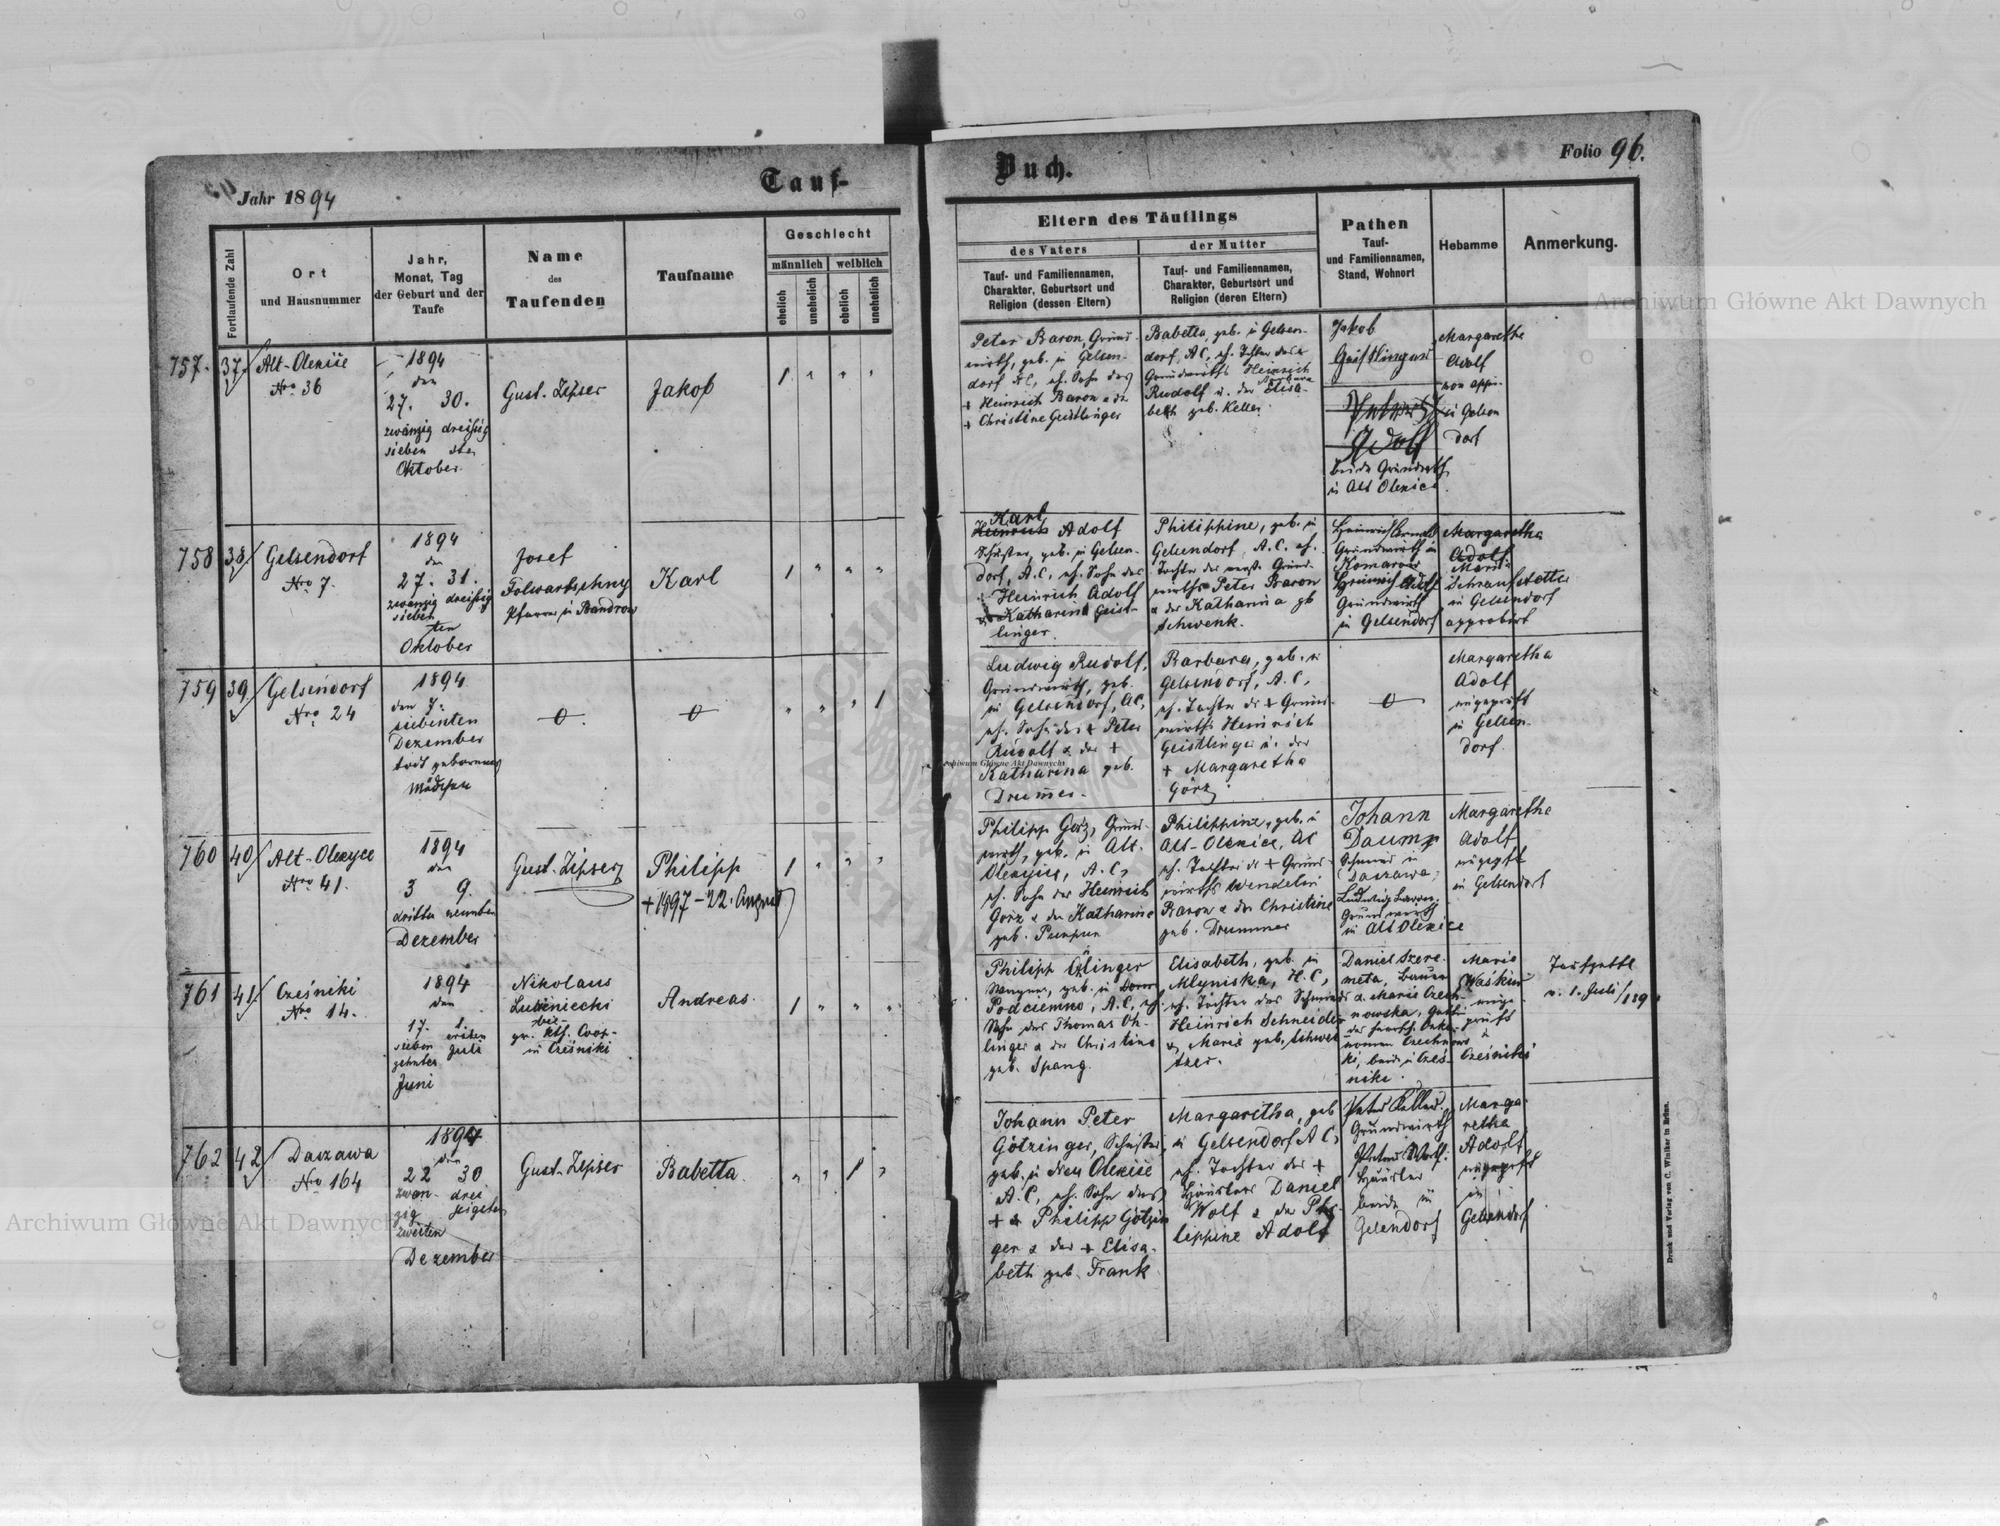 Jahr 1894
Tauf-
Buch.
Folio 96.
Fortlaufende Zahl
Ort
und Hausnummer
Jahr,
Monat, Tag
der Geburt und der
Taufe
Name
des
Taufenden
Taufname
Geschlecht
männlich
weiblich
ehelich
unehelich
ehelich
unehelich
Eltern des Täuflings
des Vaters
Tauf- und Familiennamen,
Charakter, Geburtsort und
Religion (dessen Eltern)
der Mutter
Tauf- und Familiennamen,
Charakter, Geburtsort und
Religion (deren Eltern)
Pathen
Tauf-
und Familiennamen,
Stand, Wohnort
Hebamme
Anmerkung.
757. 37.
Nro 36
1894
den
27. 30.
zwanzig dreisig
sieben sten
Oktober.
Gust. Zipser
Jakob
1 " " "
Peter Baron, Grund-
wirth, geb. in Gelsen-
dorf A.C., eh. Sohn des
+ Heinrich Baron u. der
+ Christine Geistlinger
Babetta, geb. in Gelsen-
dorf, A.C., eh. Tochter des
Grundwirths Heinrich
Rudolf u. der Elisa-
beth geb. Keller.
Jakob
Geistlinger
Adolf
beide Grundwirth
in Alt Olexice
Margaretha
Adolf
in Gelsen
dorf
758 38
Gelsendorf
Nro 7.
1894
den
27. 31.
zwanzig dreissig
sieben
ten
Oktober
Josef
Folwartschny
Pfarrer in Bandrow
Karl
1 " " "
Karl
Heinrich Adolf
Schuster, geb. in Gelsen-
dorf, A.C., eh. Sohn des
Heinrich Adolf
Katharina Geist-
linger.
Philippine, geb. in
Gelsendorf, A.C. eh.
Tochter des Grund-
wirths Peter Baron
u der Katharina gb
Schwenk.
Grundwirth in
Komarow
Heinrich Adolf
Grundwirth
in Gelsendorf
Margaretha
Adolf
Maria
in Gelsendorf
approbirt
759 39
Gelsendorf
Nro 24
1894
den 7.
siebenten
Dezember
todt geborenes
Mädchen
0.
0
" " " 1
Ludwig Rudolf,
Grundwirth, geb.
in Gelsendorf, A.C.,
eh. Sohn des + Peter
Rudolf u der +
Katharina geb.
Drummer.
Barbara, geb. in
Gelsendorf, A.C.,
eh. Tochter des + Grund-
wirths Heinrich
Geistlinger u. der
+ Margaretha
Görz.
0
Margaretha
Adolf
in Gelsen-
dorf.
760 40
Alt-Olexyce
Nro 41.
1894
den
3 9.
dritten neunten
Dezember
Gust. Zipser
Philipp
+ 1897-22. August
1 " " "
Philipp Görz, Grund-
wirth, geb. in Alt-
Olexyce, A.C.,
eh. Sohn des Heinrich
Görz u der Katharina
geb.
Philippine, geb. in
Alt-Olexice, AC
eh. Tochter des + Grund-
wirths Wendelin
Baron u der Christine
geb. Drummer
Johann
Schmied in
Daszawa,
Ludwig Baron,
Grundwirth
in Alt Olexice
Margaretha
Adolf
in Gelsendorf
761 41
Cześniki
Nro 14.
1894
den
17. 1.
sieben ersten
zehnten Juli
Juni
Nikolaus
gr. kth. Coop-
in Cześniki
Andreas
1 " " "
geb. in
Podciemno, A.C., eh.
Sohn des Thomas Oh-
linger u der Christina
geb. Spang.
Elisabeth, geb. in
Mlyniska, H.C.,
eh. Tochter des Schmieds
Heinrich Schneider
u. Maria geb. Schwei-
tzer.
Daniel Szere-
meta, Bauer
u. Maria Czech-
nowska,
ki, beide in Cześ-
niki.
Maria
in
Cześniki
1. Juli/189
762 42
Daszawa
Nro 164
1894
den
22 30
zwan- drei
zig ssigsten
zweiten
Dezember
Gust. Zipser
Babetta
" " 1 "
Johann Peter
Götzinger, Schuster,
geb. in Neu Olexice
A.C., eh. Sohn des
+ Philipp Götzin
ger u der + Elisa-
beth geb. Frank
Margaretha, geb
in Gelsendorf A.C.,
eh. Tochter des +
Häuslers Daniel
Wolf u der Phi-
lippine Adolf
Peter Keller,
Grundwirth
Peter Wolf
Häusler
beide in
Gelsendorf
Marga-
retha
Adolf
in
Gelsendorf
Druck und Verlag von C. Winiker in Brünn.
Archiwum Główne Akt Dawnych
Archiwum Główne Akt Dawnych
Archiwum Główne Akt Dawnych